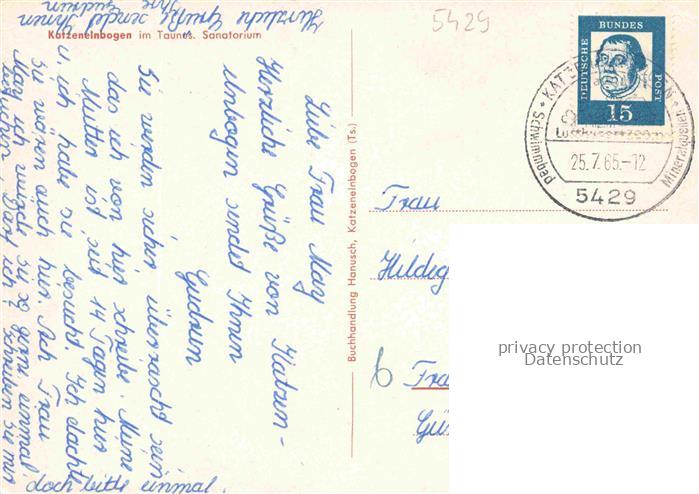 Katzenelnbogen im Taunus. Sanatorium
5429
DEUTSCHE BUNDES POST
15
KATZ
Luftkurort 300 m
Schwimmbad
Mineralquellen
25.7.65.-12
5429
Buchhandlung Hanusch, Katzenelnbogen (Ts.)
Liebe Frau May
Herzliche Grüße von Katzen-
elnbogen sendet Ihnen
Gudrun
Sie werden sicher überrascht sein
das ich von hier schreibe. Meine
Mutter ist seit 14 Tagen hier
u. ich habe sie besucht. Ich dachte
Sie wären auch hier. Ach Frau
May ich würde sie so gerne einmal
besuchen. Darf ich? Schreiben sie mir
doch bitte einmal.
Herzliche Grüße sendet Ihnen
Ihre
Gudrun
Frau
Hildeg
6 Fra
Gü
privacy protection
Datenschutz